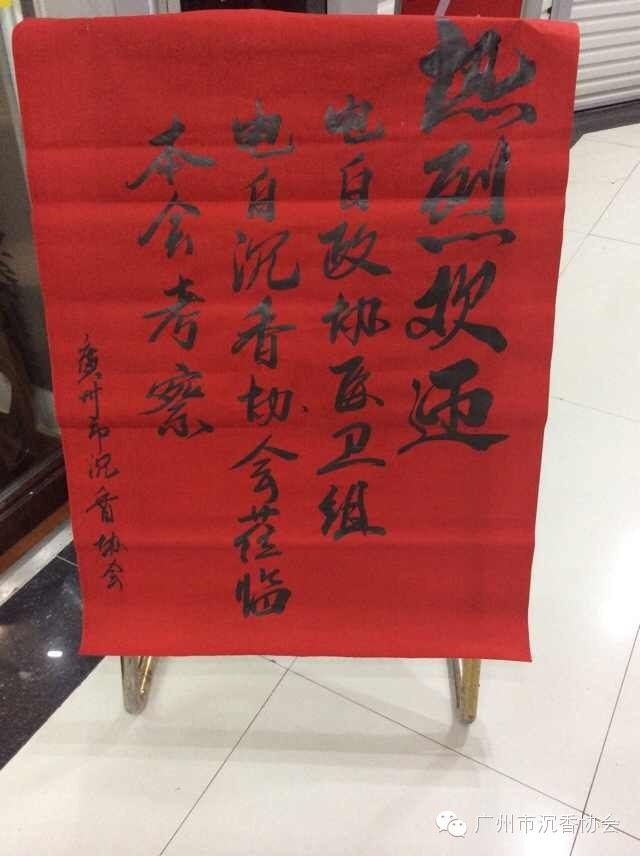 热烈欢迎
电白政协医卫组
电白沉香协会莅临
本会考察
廣州市沉香协会
广州市沉香协会